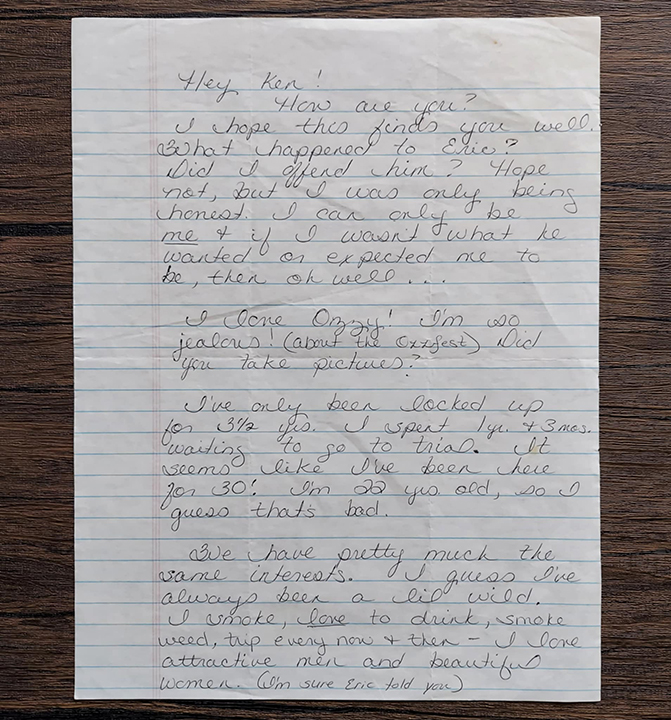 Hey Ken!
How are you?
I hope this finds you well.
What happened to Eric?
Did I offend him? Hope
not, but I was only being
honest. I can only be
me & if I wasn't what he
wanted or expected me to
be, then oh well...
I love Ozzy! I'm so
jealous! (about the Ozzfest) Did
you take pictures?
I've only been locked up
for 3½ yrs. I spent 1yr. & 3 mos.
waiting to go to trial. It
seems like I've been here
for 30! I'm 22 yrs. old, so I
guess that's bad.
We have pretty much the
same interests. I guess I've
always been a lil wild.
I smoke, love to drink, smoke
weed, trip every now & then - I love
attractive men and beautiful
women. (I'm sure Eric told you)